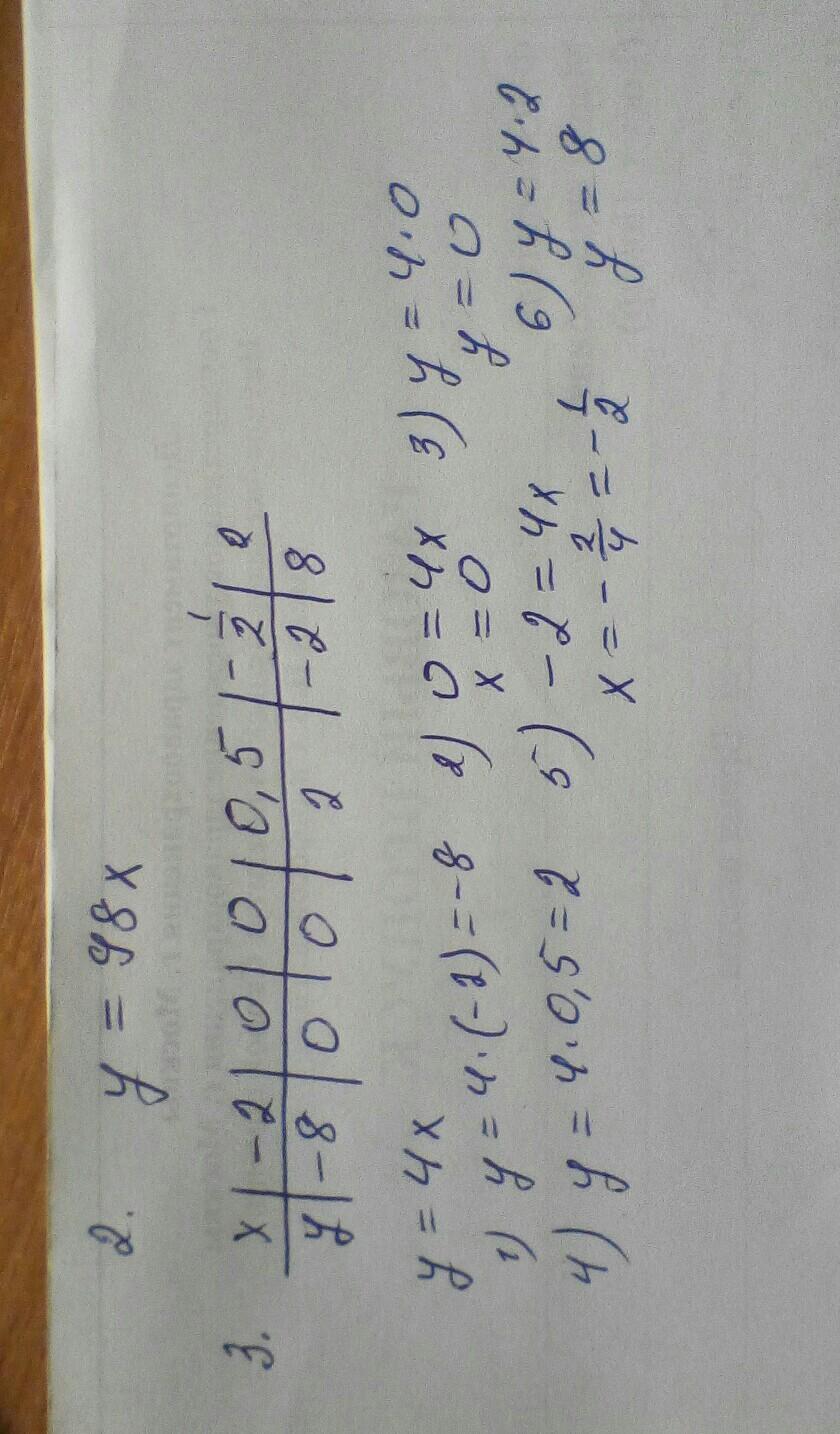 2. y = 98x
3. x | -2 | 0 | 0 | 0,5 | -1/2 | 2
y | -8 | 0 | 0 | 2 | -2 | 8
y = 4x
1) y = 4·(-2) = -8 2) 0 = 4x 3) y = 4·0
x = 0 y = 0
4) y = 4·0,5 = 2 5) -2 = 4x 6) y = 4·2
x = -2/4 = -1/2 y = 8